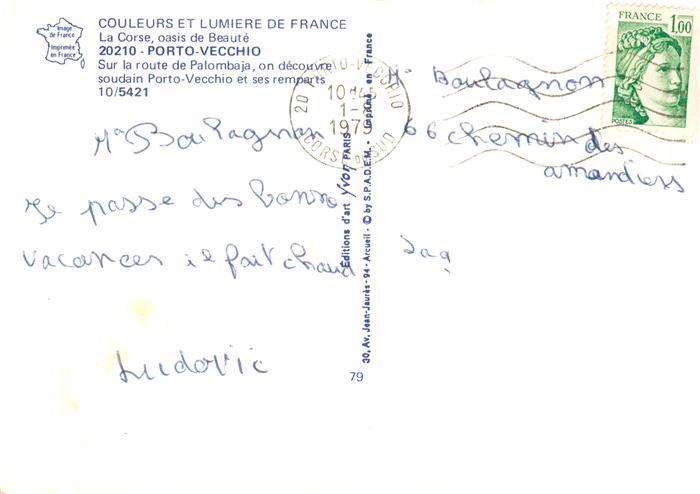 Image
de France
Imprimée
en France
COULEURS ET LUMIERE DE FRANCE
La Corse, oasis de Beauté
20210 - PORTO-VECCHIO
Sur la route de Palombaja, on découvre
soudain Porto-Vecchio et ses remparts
10/5421
Ma Boulagnan
Je passe des bonne
vacances il fait chaud
Ludovic
Éditions d'art Yvon PARIS
30, Av. Jean-Jaurès - 94 - Arcueil - © by S.P.A.D.E.M. - Imprimé en France
79
20 PORTO-VECCHIO
10H45
1-
1979
CORSE DU SUD
FRANCE
1,00
POSTES
Boulagnon
66 chemin
des
amandiers